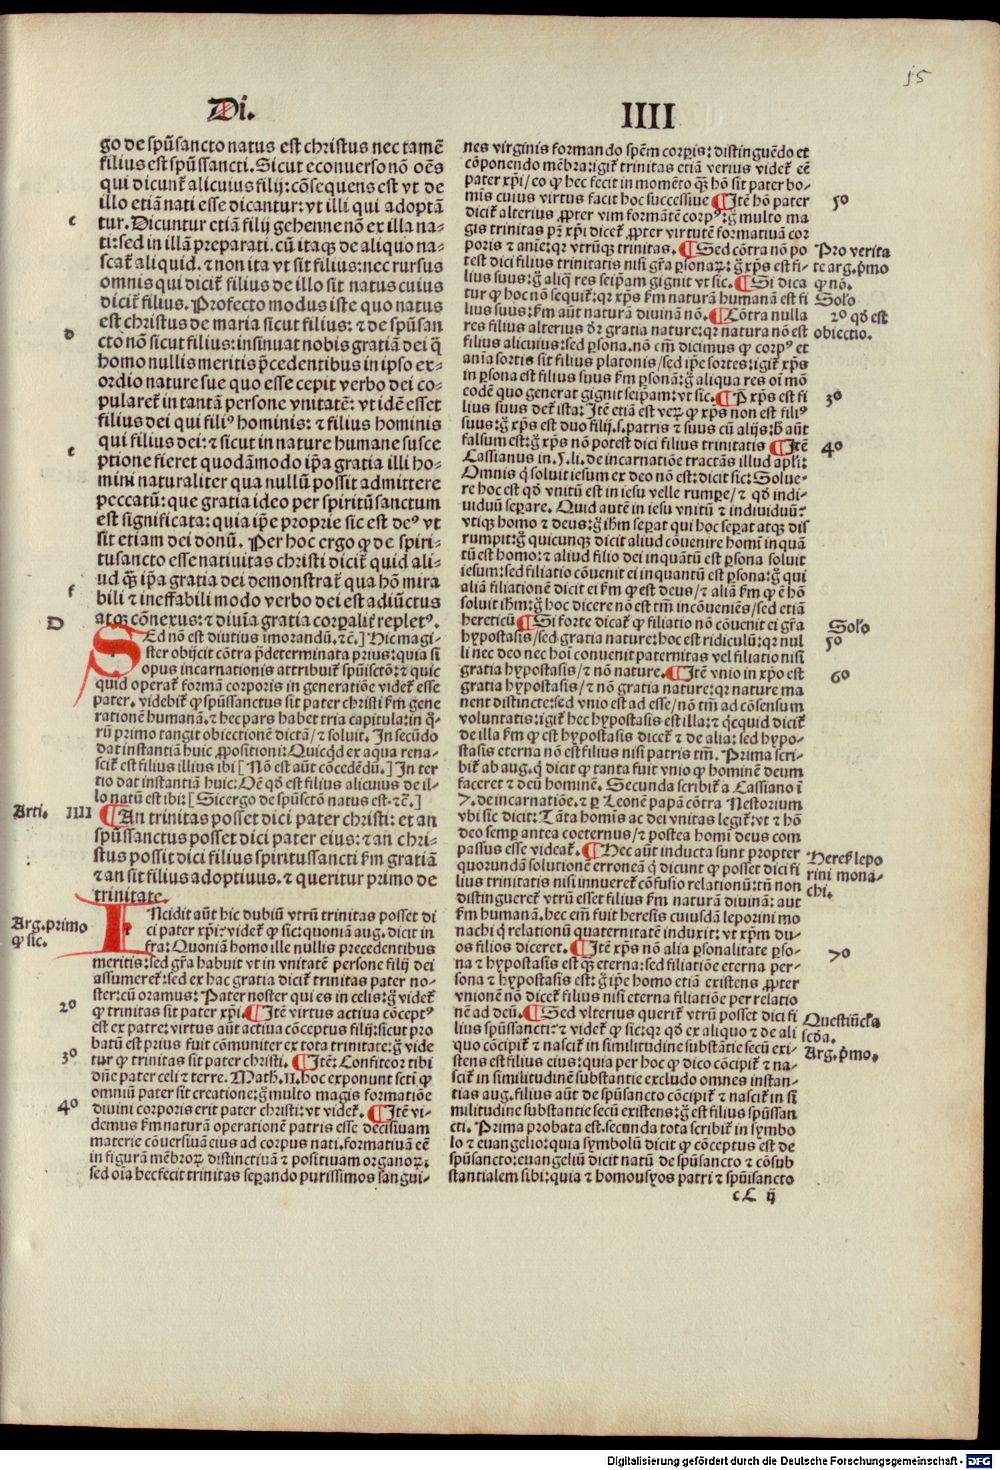 15
Di.
IIII
go de spūsancto natus est christus nec tamē
filius est spūssancti. Sicut econuerso nō oēs
qui dicunt᷑ alicuius filij: cōsequens est vt de
illo etiā nati esse dicantur: vt illi qui adoptā
tur. Dicuntur etiā filij gehenne nō ex illa na-
ti: sed in illā preparati. cū itaqꝫ de aliquo na-
scat᷑ aliquid. ⁊ non ita vt sit filius: nec rursus
omnis qui dicit᷑ filius de illo sit natus cuius
dicit᷑ filius. Profecto modus iste quo natus
est christus de maria sicut filius: ⁊ de spūsan-
cto nō sicut filius: insinuat nobis gratiā dei q̄
homo nullis meritis p̄cedentibus in ipso ex-
ordio nature sue quo esse cepit verbo dei co-
pularet᷑ in tantā persone vnitatē: vt idē esset
filius dei qui filiꝰ hominis: ⁊ filius hominis
qui filius dei: ⁊ sicut in nature humane susce
ptione fieret quodāmodo ip̄a gratia illi ho-
mini naturaliter qua nullū possit admittere
peccatū: que gratia ideo per spiritūsanctum
est significata: quia ip̄e proprie sic est deꝰ vt
sit etiam dei donū. Per hoc ergo ꝙ de spiri-
tusancto esse natiuitas christi dicit᷑ quid ali-
ud qꝫ̄ ip̄a gratia dei demonstrat᷑ qua hō mira
bili ⁊ ineffabili modo verbo dei est adiūctus
atqꝫ cōnexus: ⁊ diuīa gratia corꝑalit᷑ repletꝰ.
SEd nō est diutius īmorandū. ⁊c. ] Hic magi-
ster obijcit cōtra p̄determinata prius: quia si
opus incarnationis attribuit᷑ spūiscto: ⁊ quic
quid operat᷑ formā corporis in generatiōe videt᷑ esse
pater. videbit᷑ ꝙ spūssanctus sit pater christi ẜm gene
rationē humanā. ⁊ hec pars habet tria capitula: in q̄-
rū primo tangit obiectionē dictā/ ⁊ soluit. In secūdo
dat instantiā huic ꝓpositioni: Quicqd ex aqua rena-
scit᷑ est filius illius ibi [ Nō est aūt cōcedēdū. ] In ter
tio dat instantiā huic: Oē qd est filius alicuius de il-
lo natū est ibi: [ Sic ergo de spūscto natus est. ⁊c. ]
¶ An trinitas posset dici pater christi: et an
spūssanctus posset dici pater eius: ⁊ an chri-
stus possit dici filius spiritussancti ẜm gratiā
⁊ an sit filius adoptiuus. ⁊ queritur primo de
trinitate.
INcidit aūt hic dubiū vtrū trinitas posset di
ci pater xp̄i: videt᷑ ꝙ sic: quoniā aug. dicit in
fra: Quoniā homo ille nullis precedentibus
meritis: sed gr̄a habuit vt in vnitatē persone filij dei
assumeret᷑: sed ex hac gratia dicit᷑ trinitas pater no-
ster: cū oramus: Pater noster qui es in celis: g̊ videt᷑
ꝙ trinitas sit pater xp̄i. ¶ Itē virtus actiua cōceptꝰ
est ex patre: virtus aūt actiua cōceptus filij: sicut pro
batū est prius fuit cōmuniter ex tota trinitate: g̊ vide
tur ꝙ trinitas sit pater christi. ¶ Itē: Confiteor tibi
dn̄e pater celi ⁊ terre. Math. 11. hoc exponunt scti ꝙ
omniū pater sit creatione: g̊ multo magis formatiōe
diuini corporis erit pater christi: vt videt᷑. ¶ Itē vi-
demus ẜm naturam operationē patris esse decisiuam
materie cōuersiuā eius ad corpus nati. formatiuā eē
in figurā mēbroꝝ distinctiuā ⁊ positiuam organoꝝ:
sed oīa hec fecit trinitas seꝑando purissimos sangui-
c
D
e
f
D
Arti. IIII
Arg. primo
ꝙ sic.
2º
3º
4º
nes virginis formando spēm corꝑis: distinguēdo et
cōponendo mēbra: igit᷑ trinitas etiā verius videt᷑ eē
pater xp̄i/ eo ꝙ hec fecit in momēto qꝫ̄ hō sit pater ho-
mis cuius virtus facit hoc successiue ¶ Itē hō pater
dicit᷑ alterius ꝓpter vim formātē corpꝰ: g̊ multo ma
gis trinitas pn̄t xp̄i dicet᷑ ꝓpter virtutē formatiuā cor
poris ⁊ anīe: qr vtrūqꝫ trinitas. ¶ Sed cōtra nō po
test dici filius trinitatis nisi gr̄a ꝑsonaꝝ: g̊ xp̄s est fi-
lius suus: g̊ aliq̄ res seip̄am gignit vt sic. ¶ Si dica
tur ꝙ hoc nō sequit᷑: qr xp̄s ẜm naturā humanā est fi
lius suus: ẜm aūt naturā diuinā nō. ¶ Cōtra nulla
res filius alterius dr̄ gratia nature: qr natura nō est
filius alicuius: sed ꝑsona. nō em̄ dicimus ꝙ corpꝰ et
anīa sortis sit filius platonis/ sed ip̄e sortes: igit᷑ xp̄s
in ꝑsona est filius suus ẜm ꝑsonā: g̊ aliqua res oī mō
eodē quo generat gignit seip̄am: vt sic. ¶ P xp̄s est fi
lius suus det᷑ ista: Itē etiā est veꝝ ꝙ xp̄s non est filiꝰ
suus: g̊ xp̄s est duo filij. s. patris ⁊ suus cū alijs: ħ aūt
falsum est: g̊ xp̄s nō potest dici filius trinitatis ¶ Itē
Cassianus in. 5. li. de incarnatiōe tractās illud apl̄i:
Omnis q̄ soluit iesum ex deo nō est: dicit sic: Solue-
re hoc est qd vnitū est in iesu velle rumpe/ ⁊ qd indi-
uiduū seꝑare. Quid autē in iesu vnitū ⁊ indiuiduū?
vtiqꝫ homo ⁊ deus: g̊ ihm̄ seꝑat qui hoc seꝑat atqꝫ dis
rumpit: g̊ quicunqꝫ dicit aliud cōuenire homī inquā
tū est homo: ⁊ aliud filio dei inquātū est ꝑsona soluit
iesum: sed filiatio cōuenit ei inquantū est ꝑsona: g̊ qui
aliā filiationē dicit ei ẜm ꝙ est deus/ ⁊ aliā ẜm ꝙ ē hō
soluit ihm̄: g̊ hoc dicere nō est tm̄ incōueniēs/ sed etiā
hereticū ¶ Si forte dicat᷑ ꝙ filiatio nō cōuenit ei gr̄a
hypostasis/ sed gratia nature: hoc est ridiculū: qr nul
li nec deo nec hoī conuenit paternitas vel filiatio nisi
gratia hypostasis/ ⁊ nō nature. ¶ Itē vnio in xp̄o est
gratia hypostasis/ ⁊ nō gratia nature: qr nature ma
nent distincte: sed vnio est ad esse/ nō tm̄ ad cōsensum
voluntatis: igit᷑ hec hypostasis est illa: ⁊ qcquid dicit᷑
de illa ẜm ꝙ est hypostasis dicet᷑ ⁊ de alia: sed hypo-
stasis eterna nō est filius nisi patris tm̄. Prima scri-
bit᷑ ab aug. q̄ dicit ꝙ tanta fuit vnio ꝙ hominē deum
faceret ⁊ deū hominē. Secunda scribit᷑ a Cassiano ī
7. de incarnatiōe. ⁊ ꝑ Leonē papā cōtra Nestorium
vbi sic dicit: Tāta homīs ac dei vnitas legit᷑: vt ⁊ hō
deo semꝑ antea coeternus/ ⁊ postea homī deus com
passus esse videat᷑. ¶ Hec aūt inducta sunt propter
quorundā solutionē erroneā q̄ dicunt ꝙ posset dici fi
lius trinitatis nisi innueret᷑ cōfusio relationū: tn̄ non
distingueret᷑ vtrū esset filius ẜm naturā diuinā: aut
ẜm humanā. hec em̄ fuit heresis cuiusdā leporini mo
nachi q̄ relationū quaternitatē induxit: vt xp̄m du-
os filios diceret. ¶ Itē xp̄s nō alia ꝑsonalitate ꝑso-
na ⁊ hypostasis est qꝫ̄ eterna: sed filiatiōe eterna per-
sona ⁊ hypostasis est: g̊ ip̄e homo etiā existens ꝓpter
vnionē nō dicet᷑ filius nisi eterna filiatiōe per relatio
nē ad deū. ¶ Sed vlterius querit᷑ vtrū posset dici fi
lius spūssancti: ⁊ videt᷑ ꝙ sic: qr qd ex aliquo ⁊ de ali
quo cōcipit᷑ ⁊ nascit᷑ in similitudinē substantie secū exi-
stens est filius eius: quia per hoc ꝙ dico cōcipit᷑ ⁊ na-
scit᷑ in similitudinē substantie excludo omnes instan-
tias aug. filius aūt de spūsancto cōcipit᷑ ⁊ nascit᷑ in si
militudine substantie secū existens: g̊ est filius spūssan
cti. Prima probata est. secunda tota scribit᷑ in symbo
lo ⁊ euangelio: quia symbolū dicit ꝙ conceptus est de
spūsancto: euangeliū dicit natū de spūsancto ⁊ cōsub
stantialem sibi: quia ⁊ homousyos patri ⁊ spūisancto
cC ij
5º
Pro verita
te arg. p̄mo
ꝙ nō.
Solo
2º qd est
obiectio.
3º
4º
Solo
5º
6º
Heres᷑ lepo
rini mona-
chi.
7º
Questiūcl̄a
scd̄a.
Arg. p̄mo.
Digitalisierung gefördert durch die Deutsche Forschungsgemeinschaft - DFG